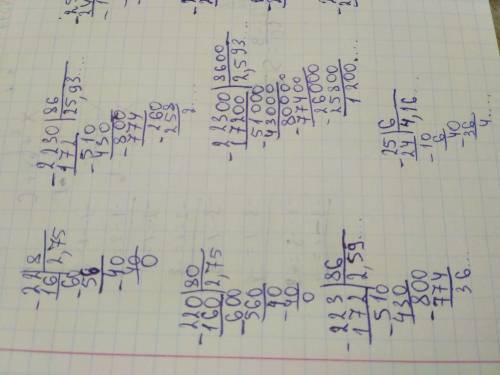 -223|86
172|2,59...
-510
430
-800
774
36...
-220|80
160|2,75
-600
560
-40
40
0
-22|8
16|2,75
-60
56
-40
40
0
-25|6
24|4,16
-10
6
-40
36
4...
-22300|8600
17200|2,593....
-51000
43000
-80000
77400
-26000
25800
1200....
-2230|86
172|25,93...
-510
430
-800
774
-260
258
2...